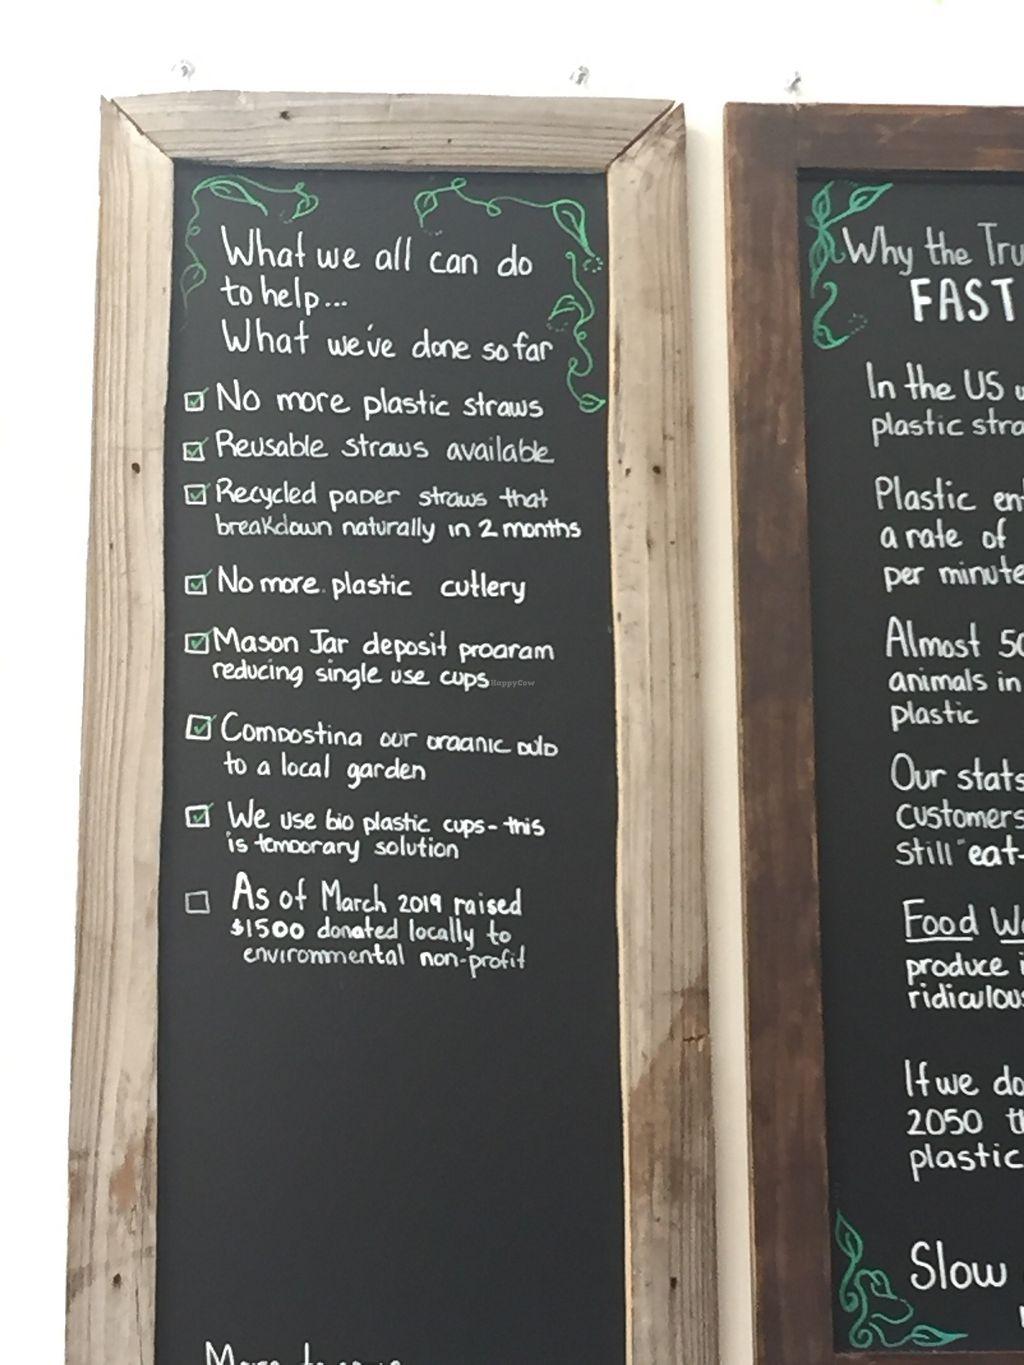 What we all can do
to help...
What we've done so far
No more plastic straws
Reusable straws available
Recycled paper straws that
breakdown naturally in 2 months
No more plastic cutlery
Mason Jar deposit program
reducing single use cups
HappyCow
Composting our organic pulp
to a local garden
We use bio plastic cups - this
is temporary solution
As of March 2019 raised
$1500 donated locally to
environmental non-profit
Why the
FAST
In the US
plastic
Plastic
a rate of
per minute
Almost
animals in
plastic
Our stats
customers
still "eat-
Food
produce
ridiculous
If we
2050
plastic
Slow